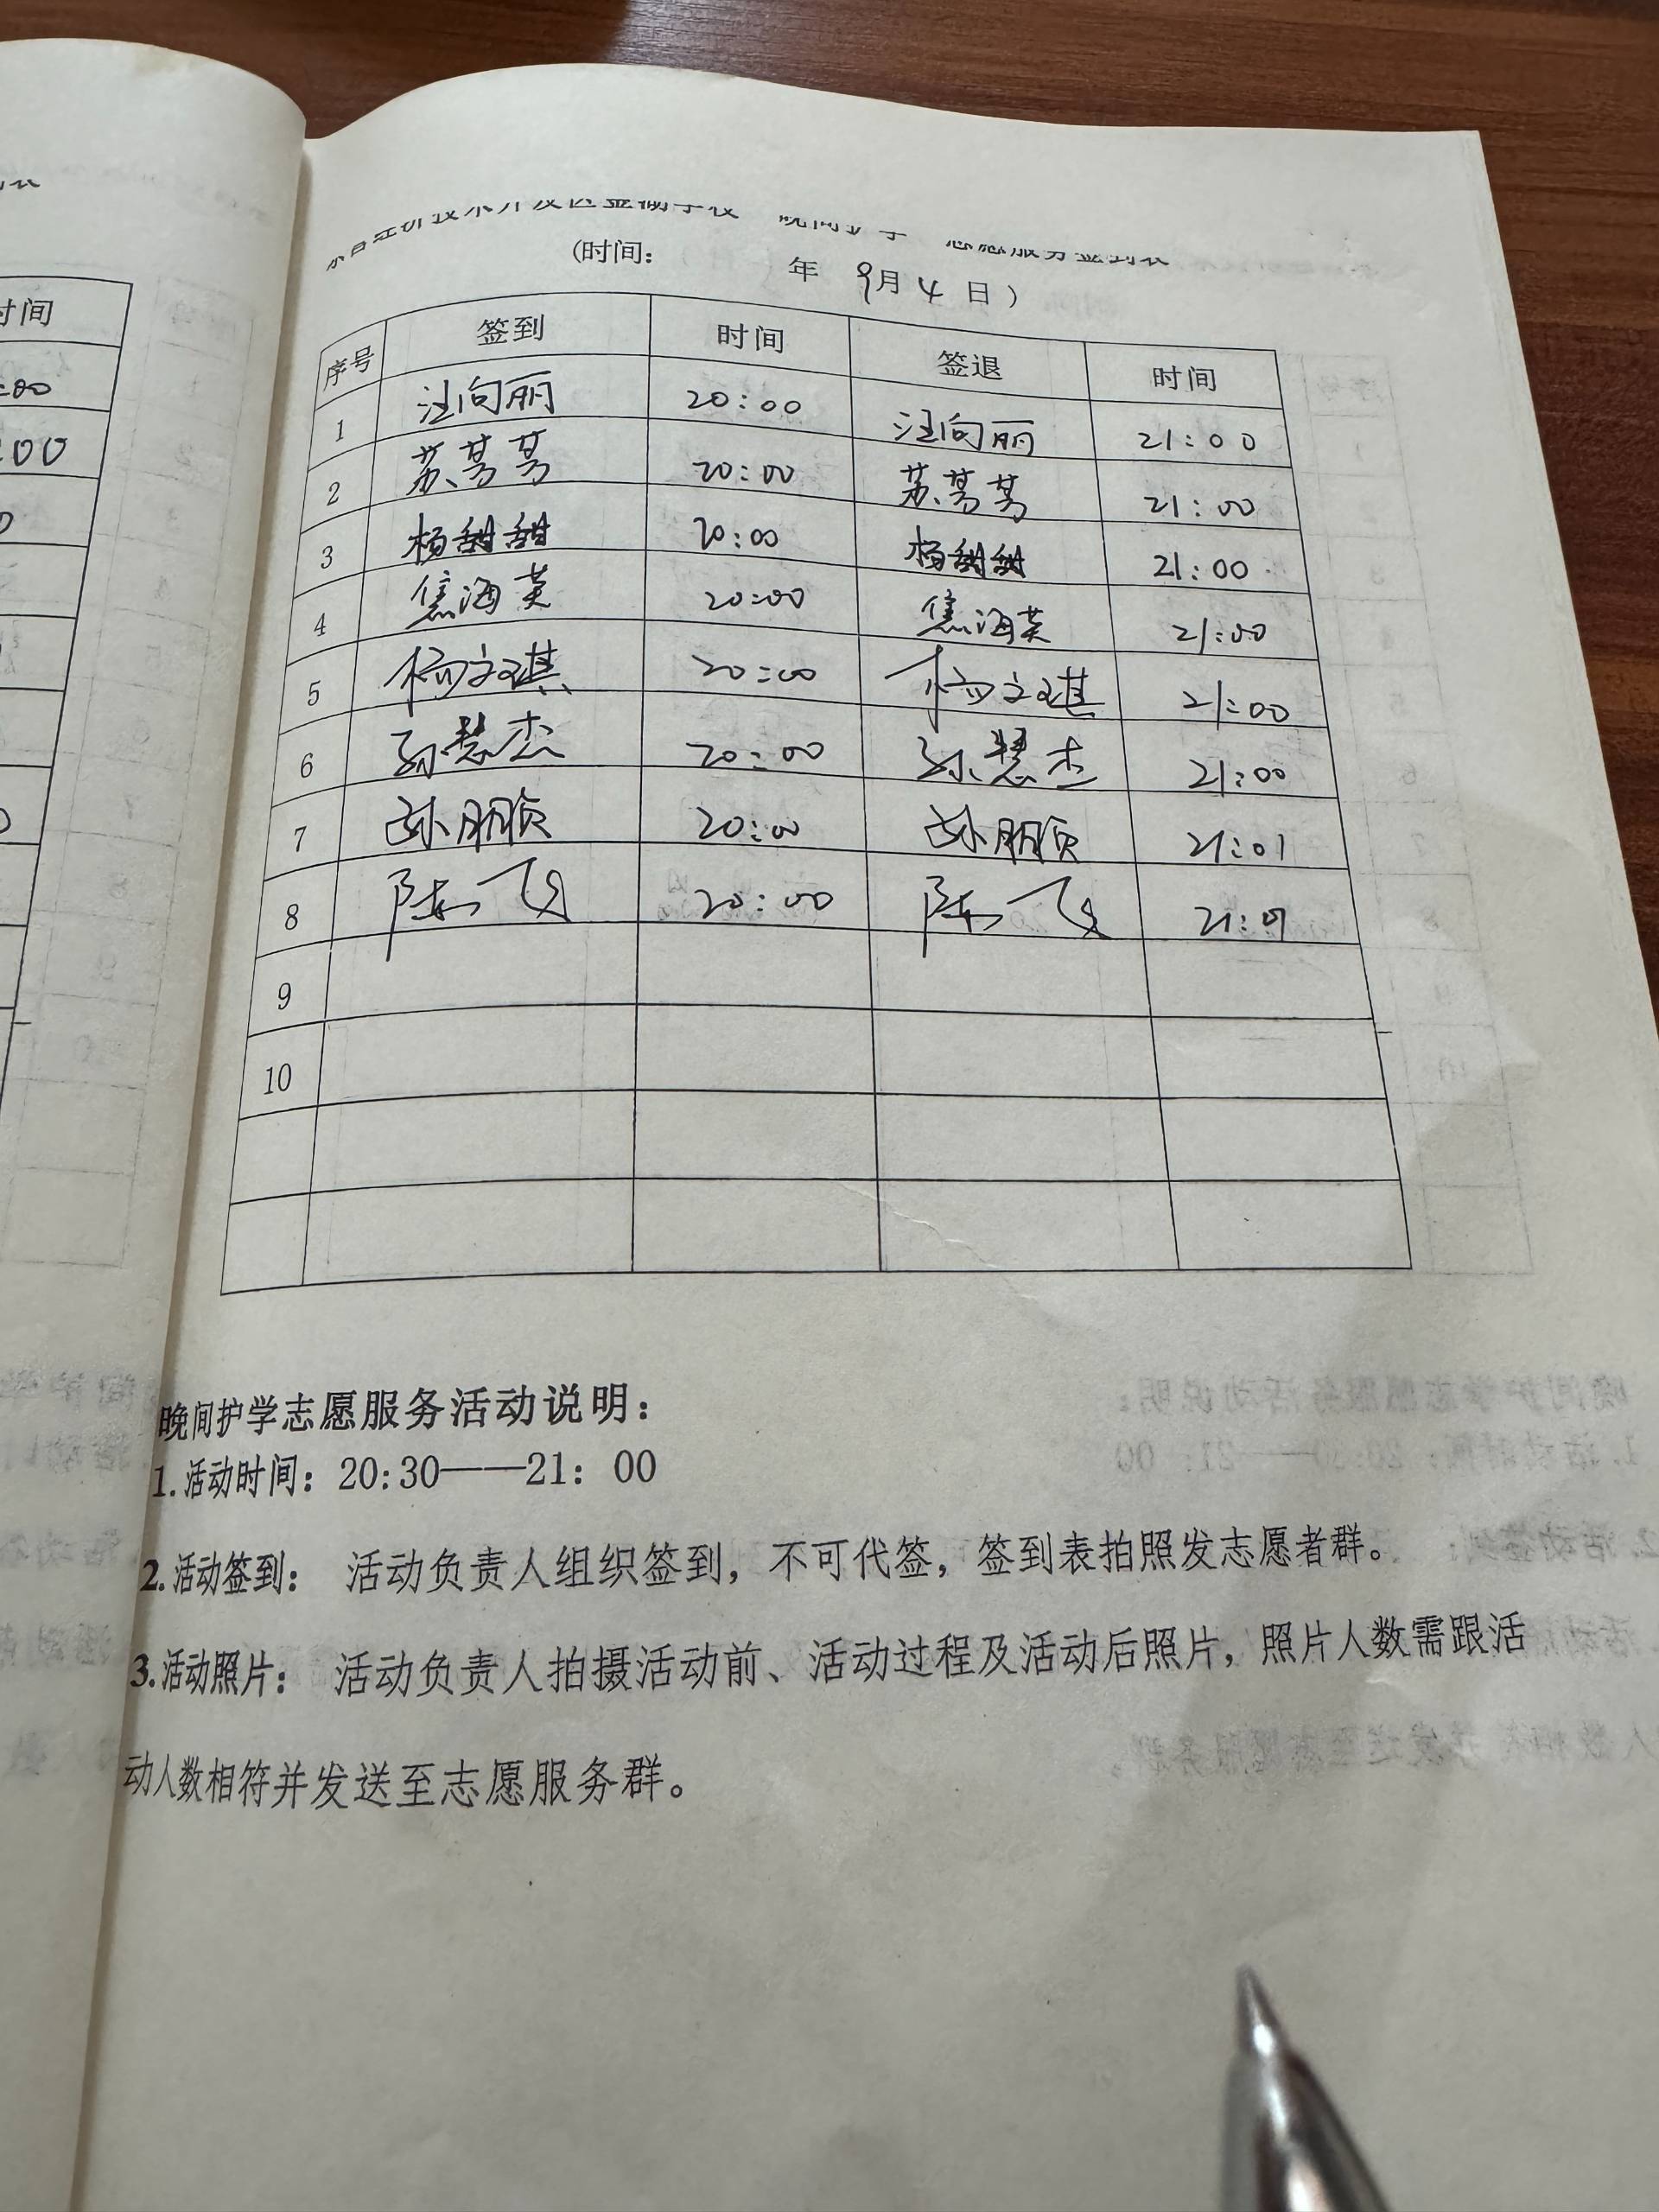 晚间护学 志愿服务签到表
(时间: 年 9月 4 日)
序号 签到 时间 签退 时间
1 汪向丽 20:00 汪向丽 21:00
2 苏茑茑 20:00 苏茑茑 21:00
3 杨甜甜 20:00 杨甜甜 21:00
4 焦海英 20:00 焦海英 21:00
5 杨文琪 20:00 杨文琪 21:00
6 孙慧杰 20:00 孙慧杰 21:00
7 20:00 21:01
8 陈飞 20:00 陈飞 21:01
9
10
晚间护学志愿服务活动说明:
1.活动时间: 20:30——21: 00
2.活动签到: 活动负责人组织签到，不可代签，签到表拍照发志愿者群。
3.活动照片: 活动负责人拍摄活动前、活动过程及活动后照片，照片人数需跟活
动人数相符并发送至志愿服务群。
时间
:00
:00